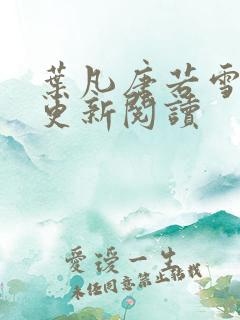 葉凡唐若雪
更新閱讀
愛禐一生
未任同意禁止轉載